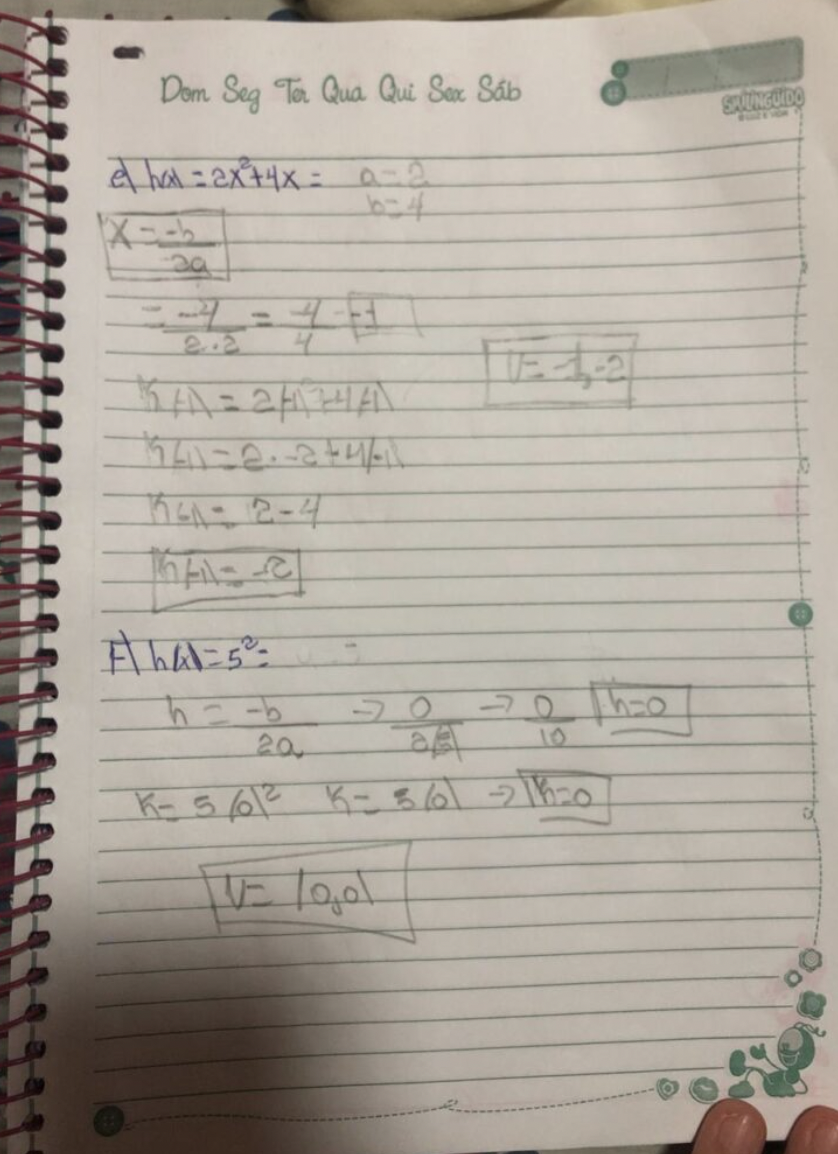 Dom Seg Ter Qua Qui Sex Sáb
e) h(x) = 2x²+4x = a=2
b=4
x = -b
2a
= -4 = -4 = -1
2·2 4
V= -1,-2
K(-1) = 2(-1)²+4(-1)
K(-1) = 2·-2+4(-1)
K(-1) = 2-4
K(-1) = -2
F) h(x)=5²=
h = -b → 0 → 0 h=0
2a 10
K= 5(0)² K= 5(0) → K=0
V= (0,0)